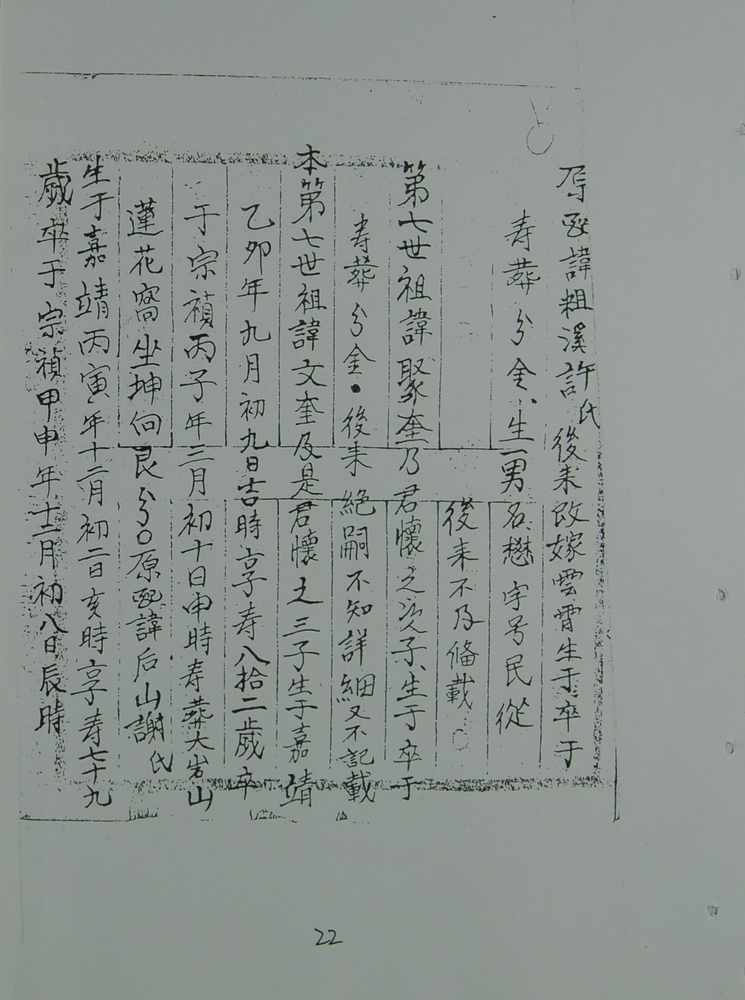 原配諱粗溪許氏後来改嫁雲霄生于卒于
寿葬分金、生一男名懋字号民從
後来不及俻載
第七世祖諱聚奎乃君懷之次子、生于卒于
寿葬分金•後来絶嗣不知詳細又不記載
本第七世祖諱文奎及是君懷之三子生于嘉靖
乙卯年九月初九日吉時享寿八拾二歲卒
于宗禎丙子年三月初十日申時寿葬大岩山
蓮花窩坐坤向艮分〇原配諱后山謝氏
生于嘉靖丙寅年十二月初二日亥時享寿七十九
歲卒于宗禎甲申年十二月初八日辰時
22